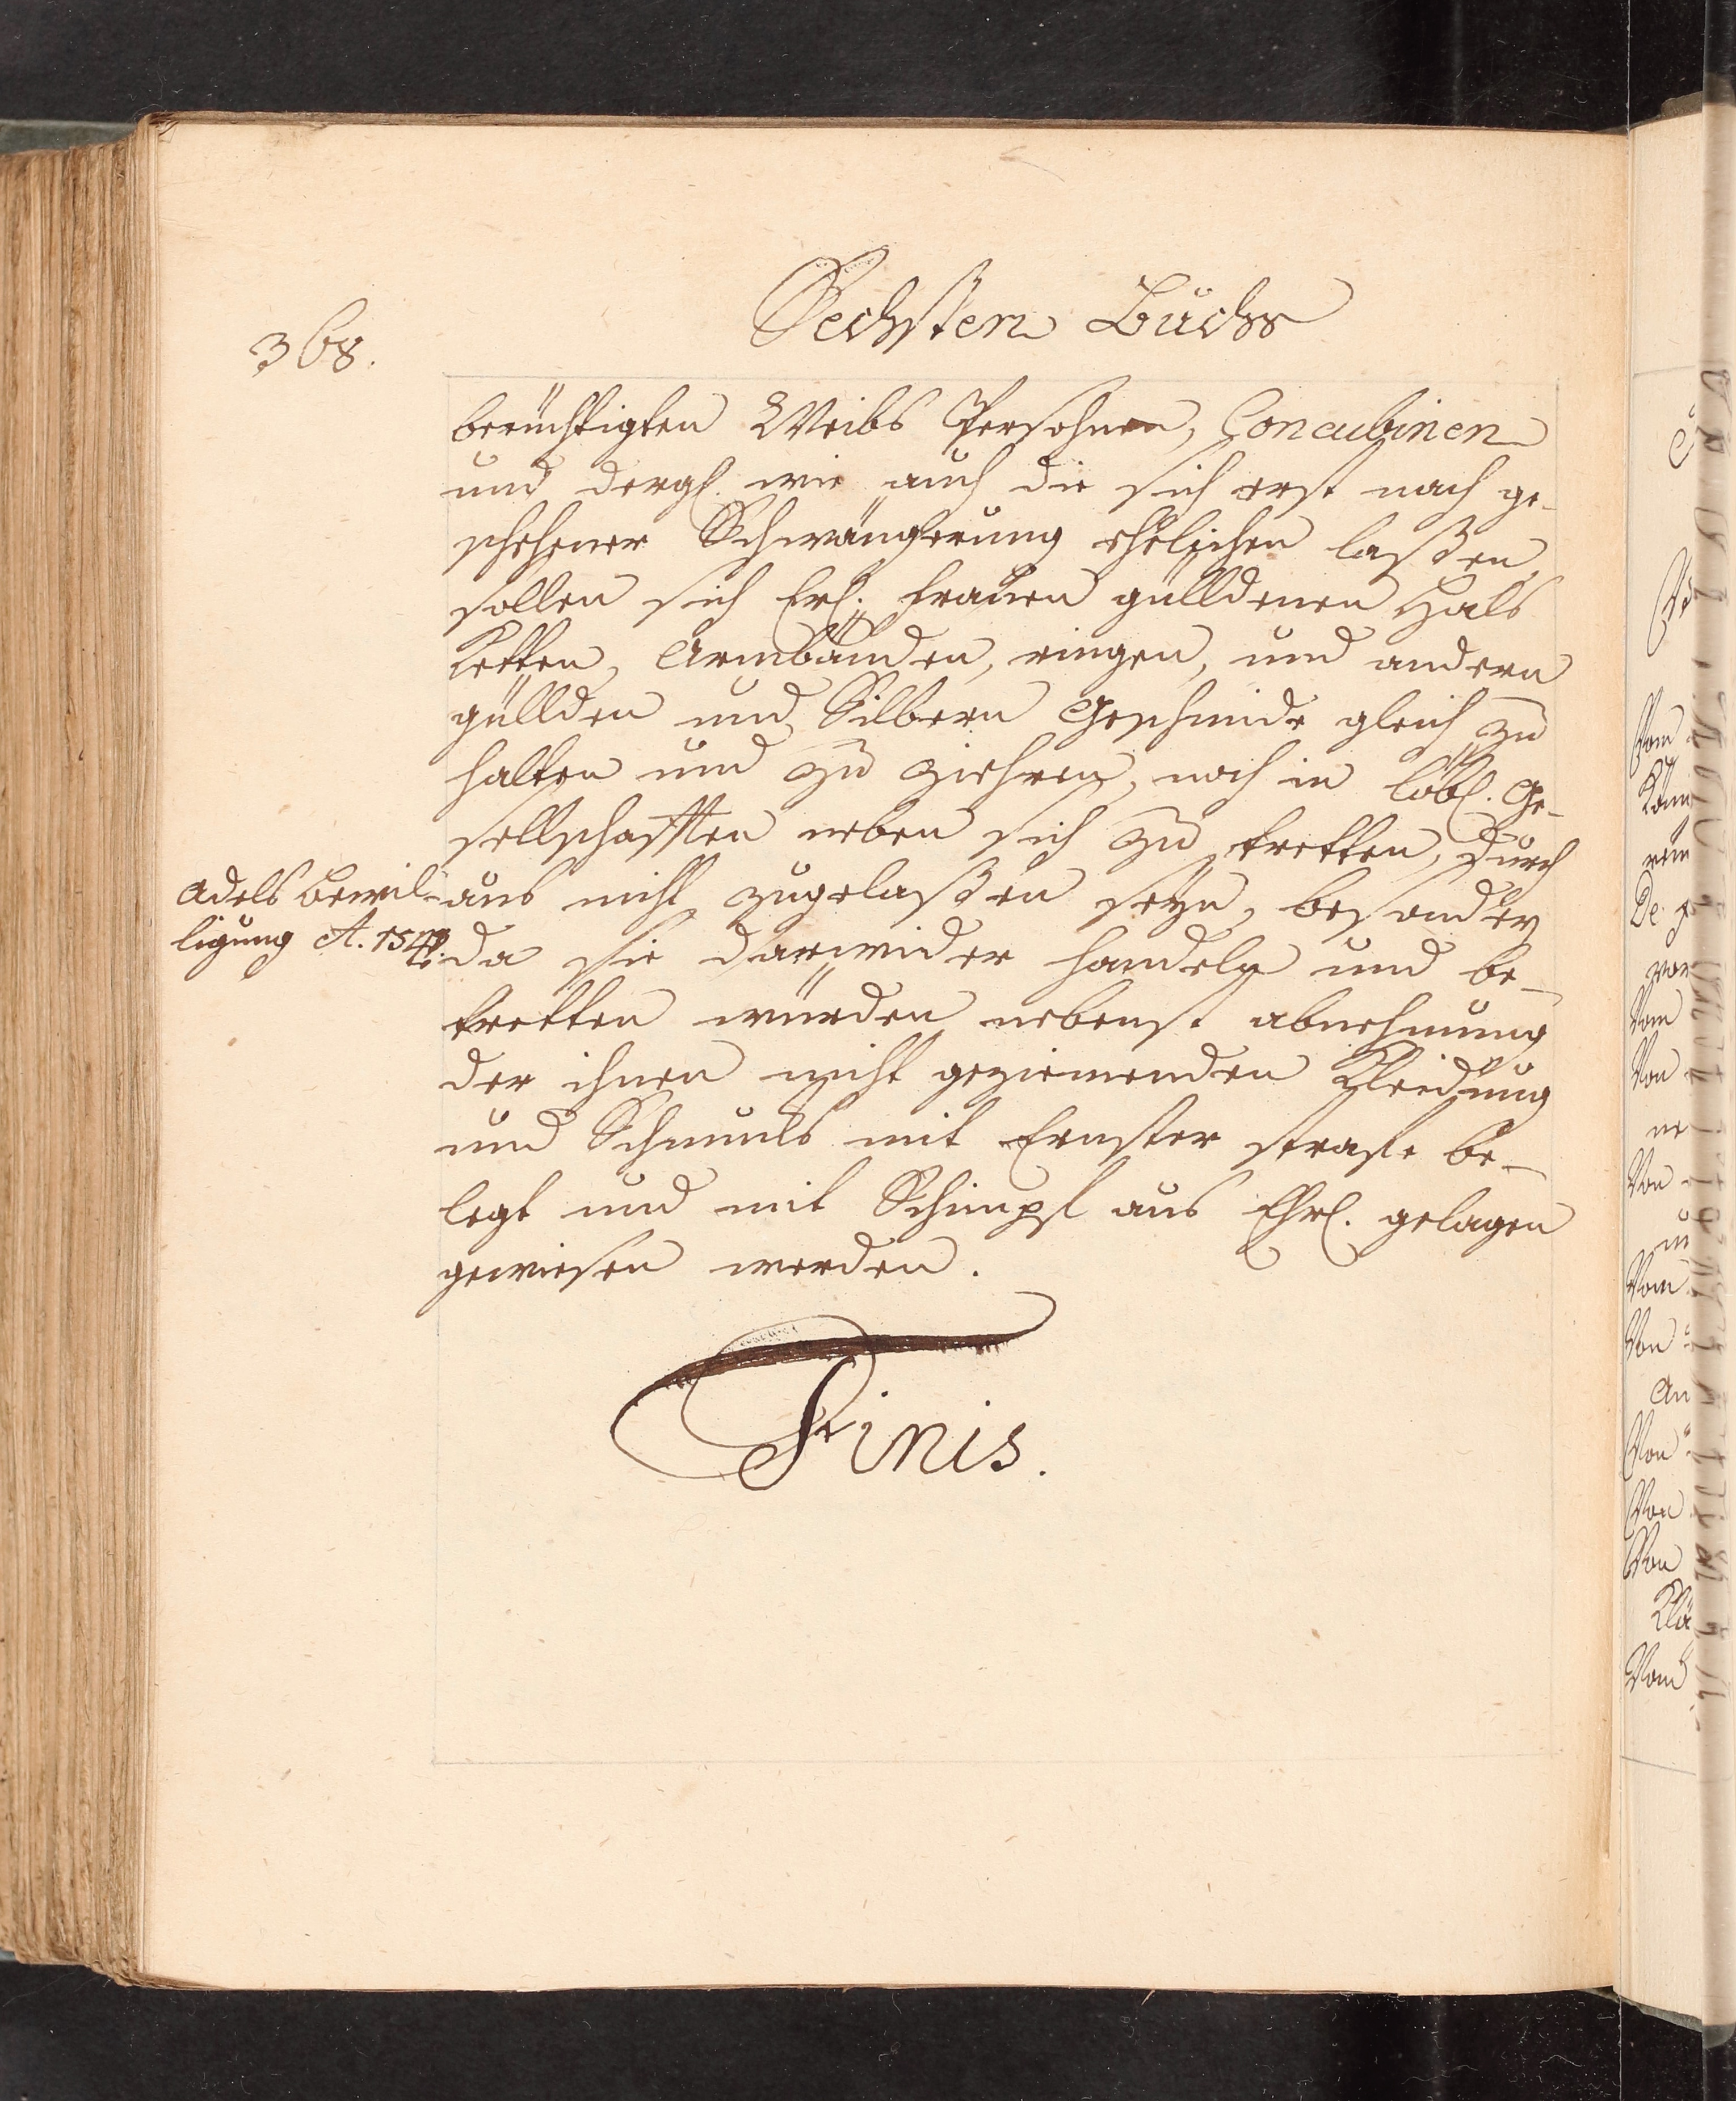 368.
Sechsten Buchs
berüchtigten Weibs Persohnen, Concubinen
und dergl. wie auch die sich erst nach ge-
schehener Schwängerung ehelichen laßen,
sollen sich Erl. Frauen gülldenen Hals
Ketten, Armbänden, ringen, und andern
güllden und Silbern Geschmide gleich zu
halten und zu ziehren, noch in löbl. Ge-
sellschafften neben sich zu tretten, durch
Adels bewil-
ligung A.
aus nicht zugelaßen seyn, besonder
da sie darwider handeln und be-
tretten würden nebenst abnehmung
der ihnen nicht geziemenden Kleidung
und Schmucks mit Ernster strafe be-
legt und mit Schimpf aus Ehrl. gelagen
gewiesen werden.
Finis.